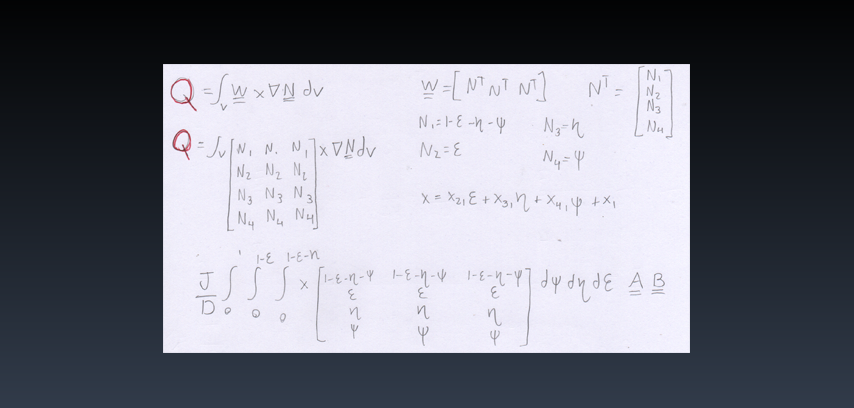 Q = ∫v W x ∇N dv
W = [ Nᵀ Nᵀ Nᵀ ]
Nᵀ = [ N1 N2 N3 N4 ]
N1 = 1-ε-η-ψ
N3 = η
N2 = ε
N4 = ψ
Q = ∫v [ N1 N. N1 ] x ∇N dv
N2 N2 N2
N3 N3 N3
N4 N4 N4
x = x21 ε + x31 η + x41 ψ + x1
J/D ∫0 1 ∫0 1-ε ∫0 1-ε-η x [ 1-ε-η-ψ 1-ε-η-ψ 1-ε-η-ψ ] dψ dη dε A B
ε ε ε
η η η
ψ ψ ψ